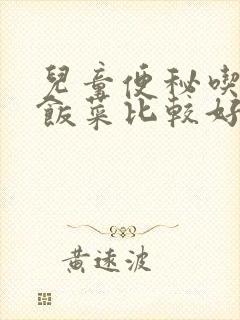 兒童便秘喫
飯菜比較好
黃遠波